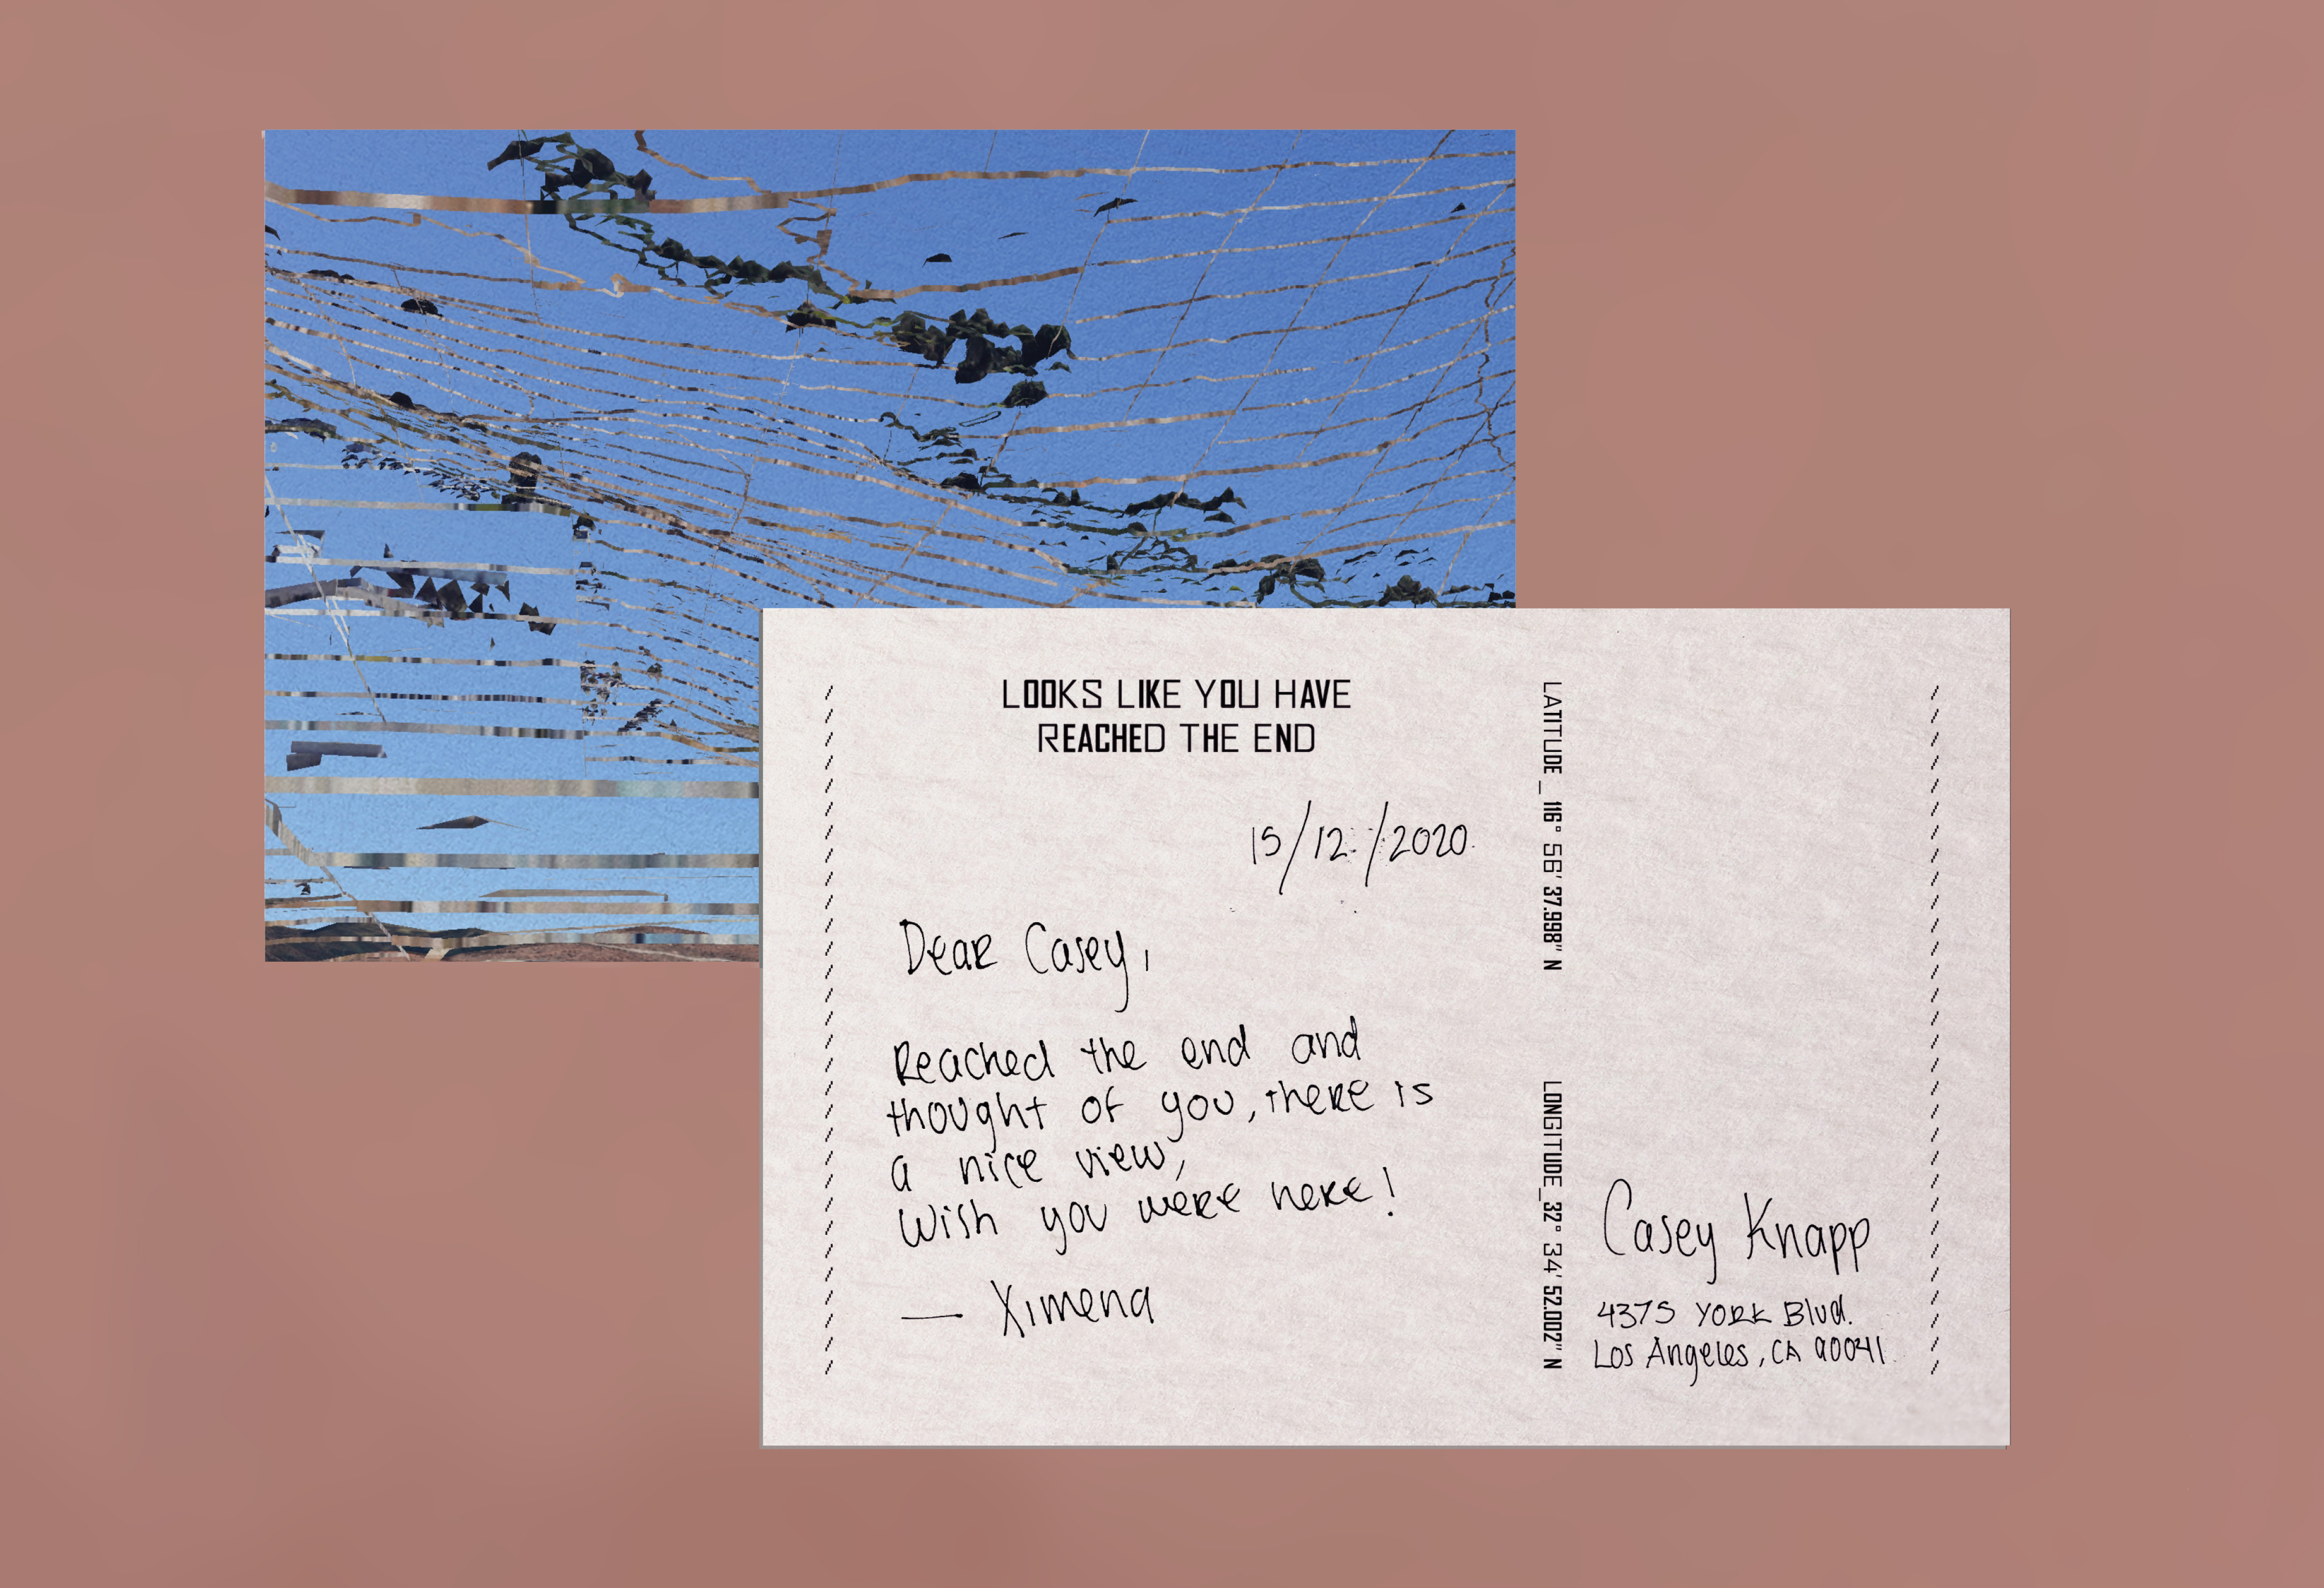 LOOKS LIKE YOU HAVE
REACHED THE END
15/12/2020
Dear Casey,
Reached the end and
thought of you, there is
a nice view,
Wish you were here!
— Ximena
LATITUDE_116° 56' 37.998" N
LONGITUDE_32° 34' 52.002" N
Casey Knapp
4375 YORK Blvd.
Los Angeles, CA 90041